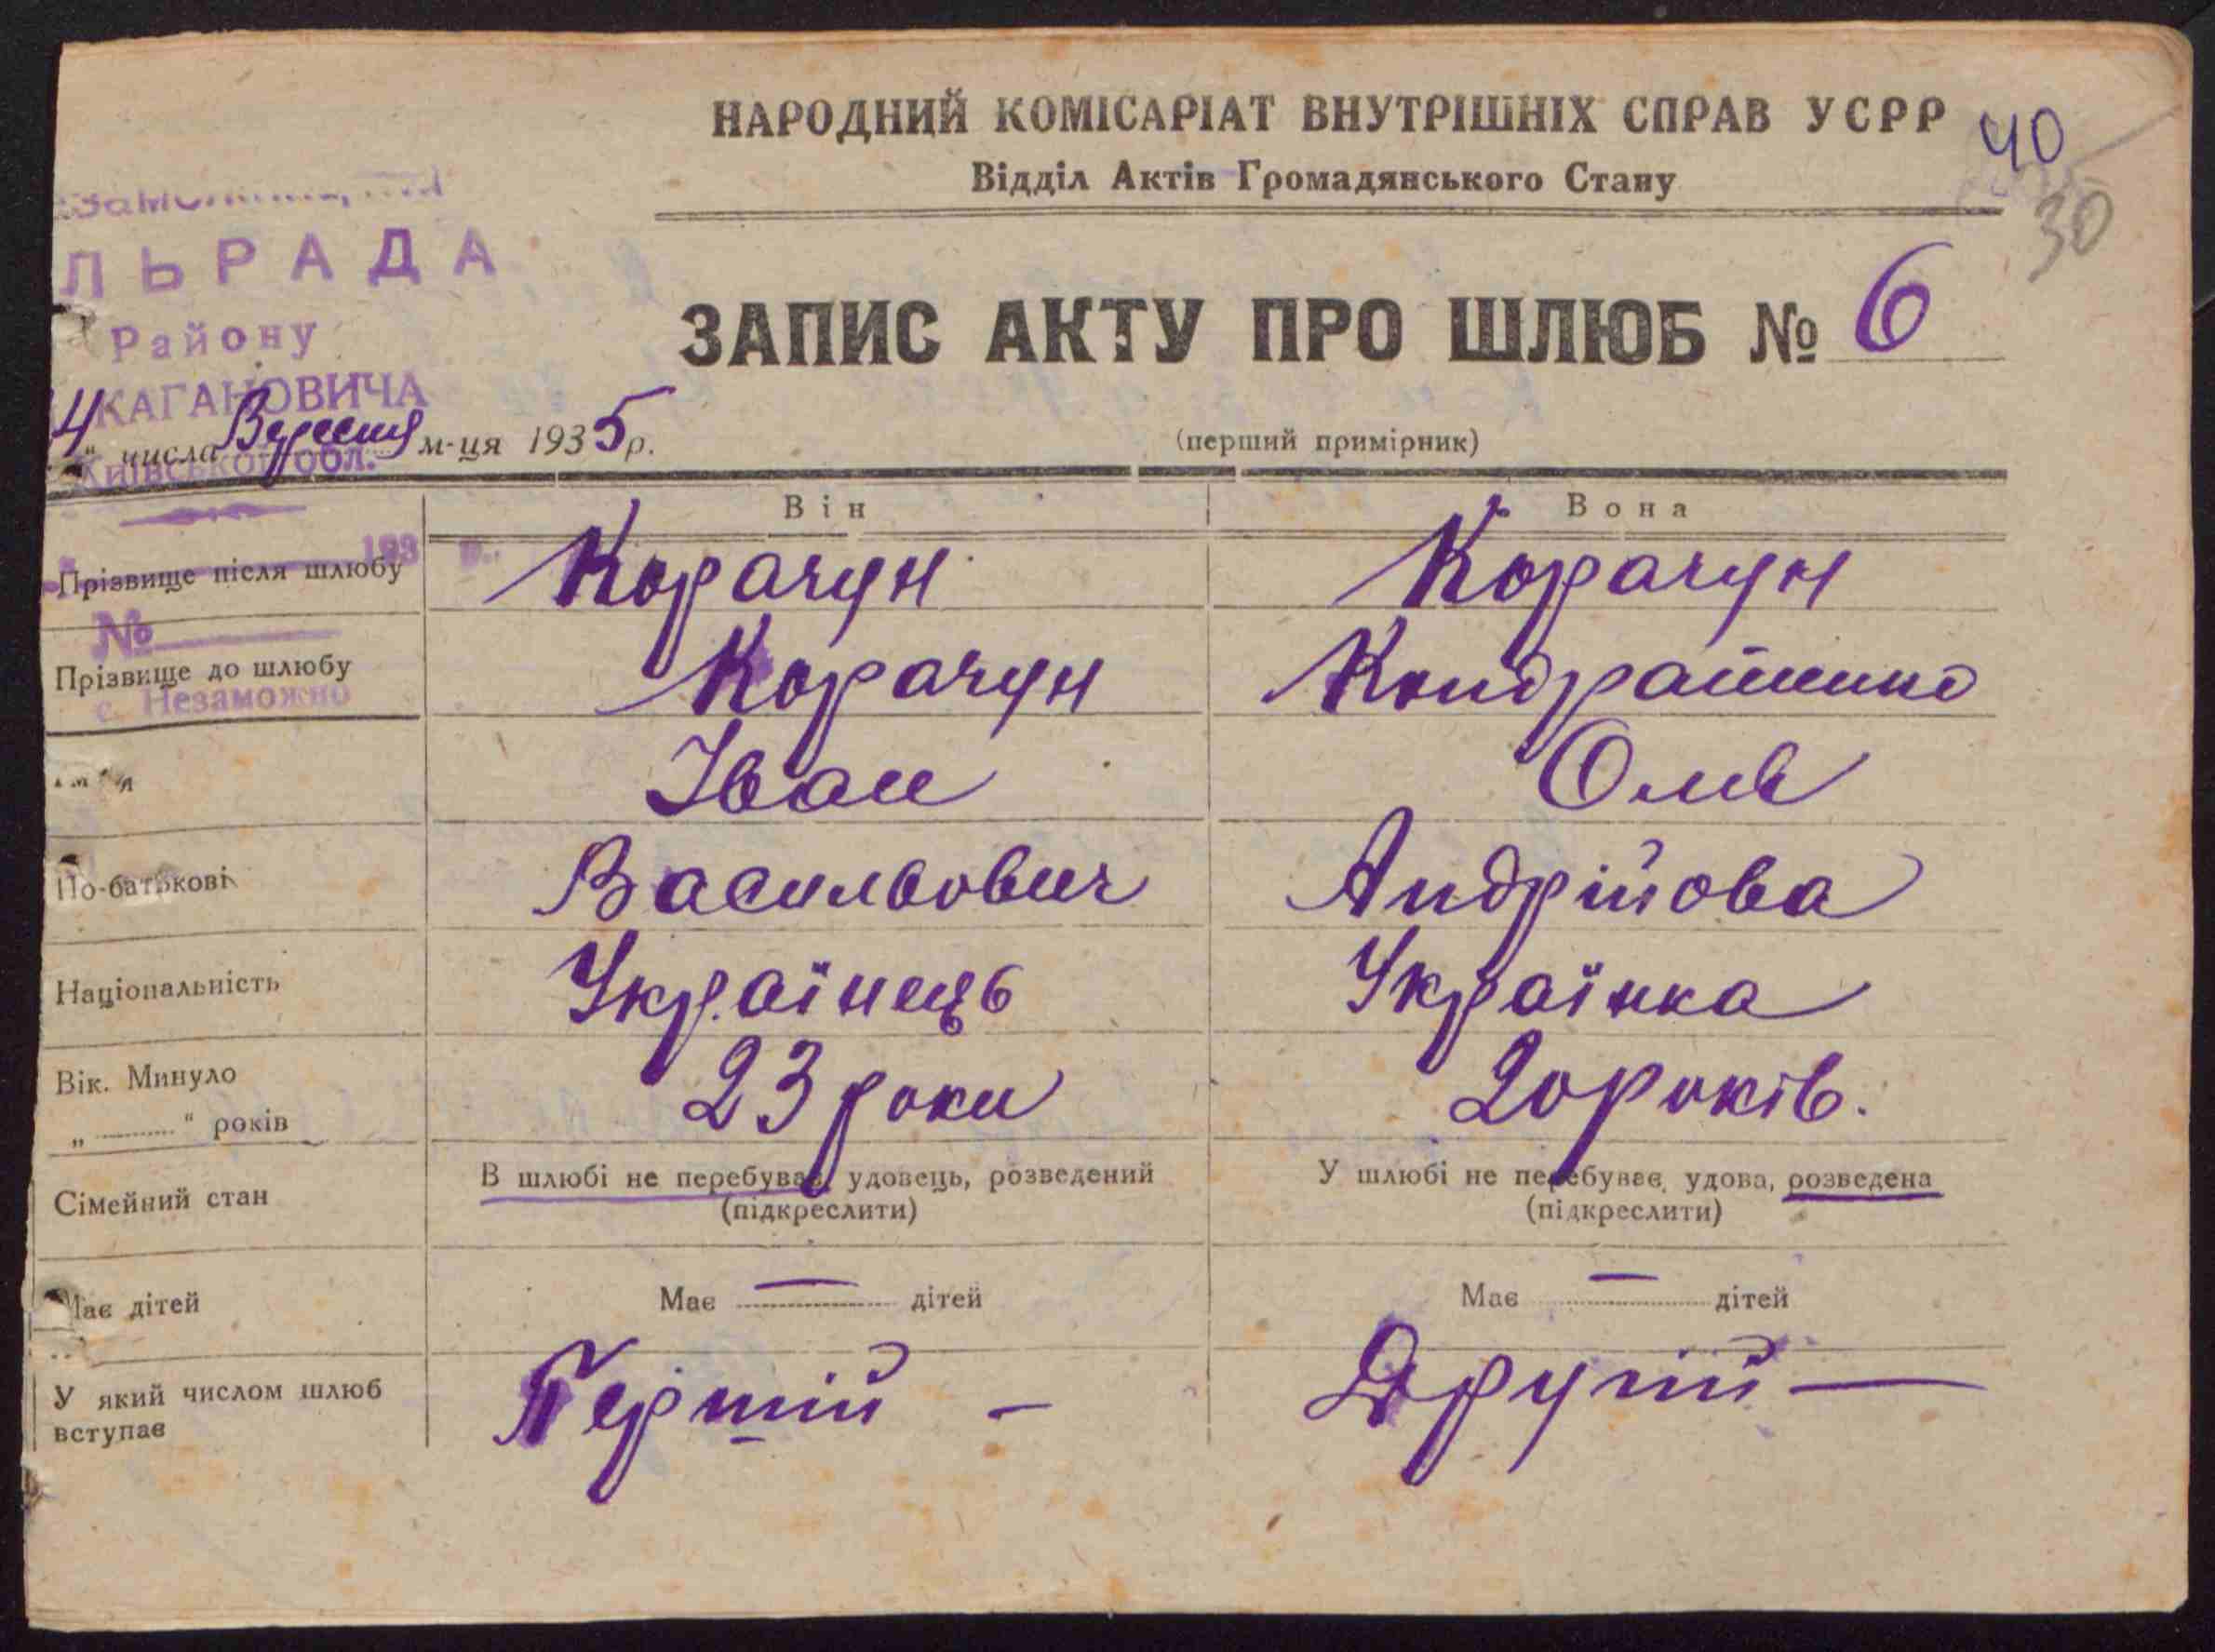 НАРОДНИЙ КОМІСАРІАТ ВНУТРІШНІХ СПРАВ УСРР
40
Відділ Актів Громадянського Стану
30
ЛЬРАДА
Району
КАГАНОВИЧА
Київської обл.
ЗАПИС АКТУ ПРО ШЛЮБ № 6
4 " числа Вересня м-ця 1935 р.
(перший примірник)
Він Вона
193 р.
Прізвище після шлюбу Корачун Корачун
№
Прізвище до шлюбу Корачун Кондратенко
с. Незаможно
Іван Оля
По-батькові Васильович Андрійова
Національність Українець Українка
Вік. Минуло 23 роки 20 років.
„ " років
Сімейний стан В шлюбі не перебував, удовець, розведений У шлюбі не перебуває, удова, розведена
(підкреслити) (підкреслити)
Має дітей Має — дітей Має — дітей
У який числом шлюб вступає Першій — Другій —